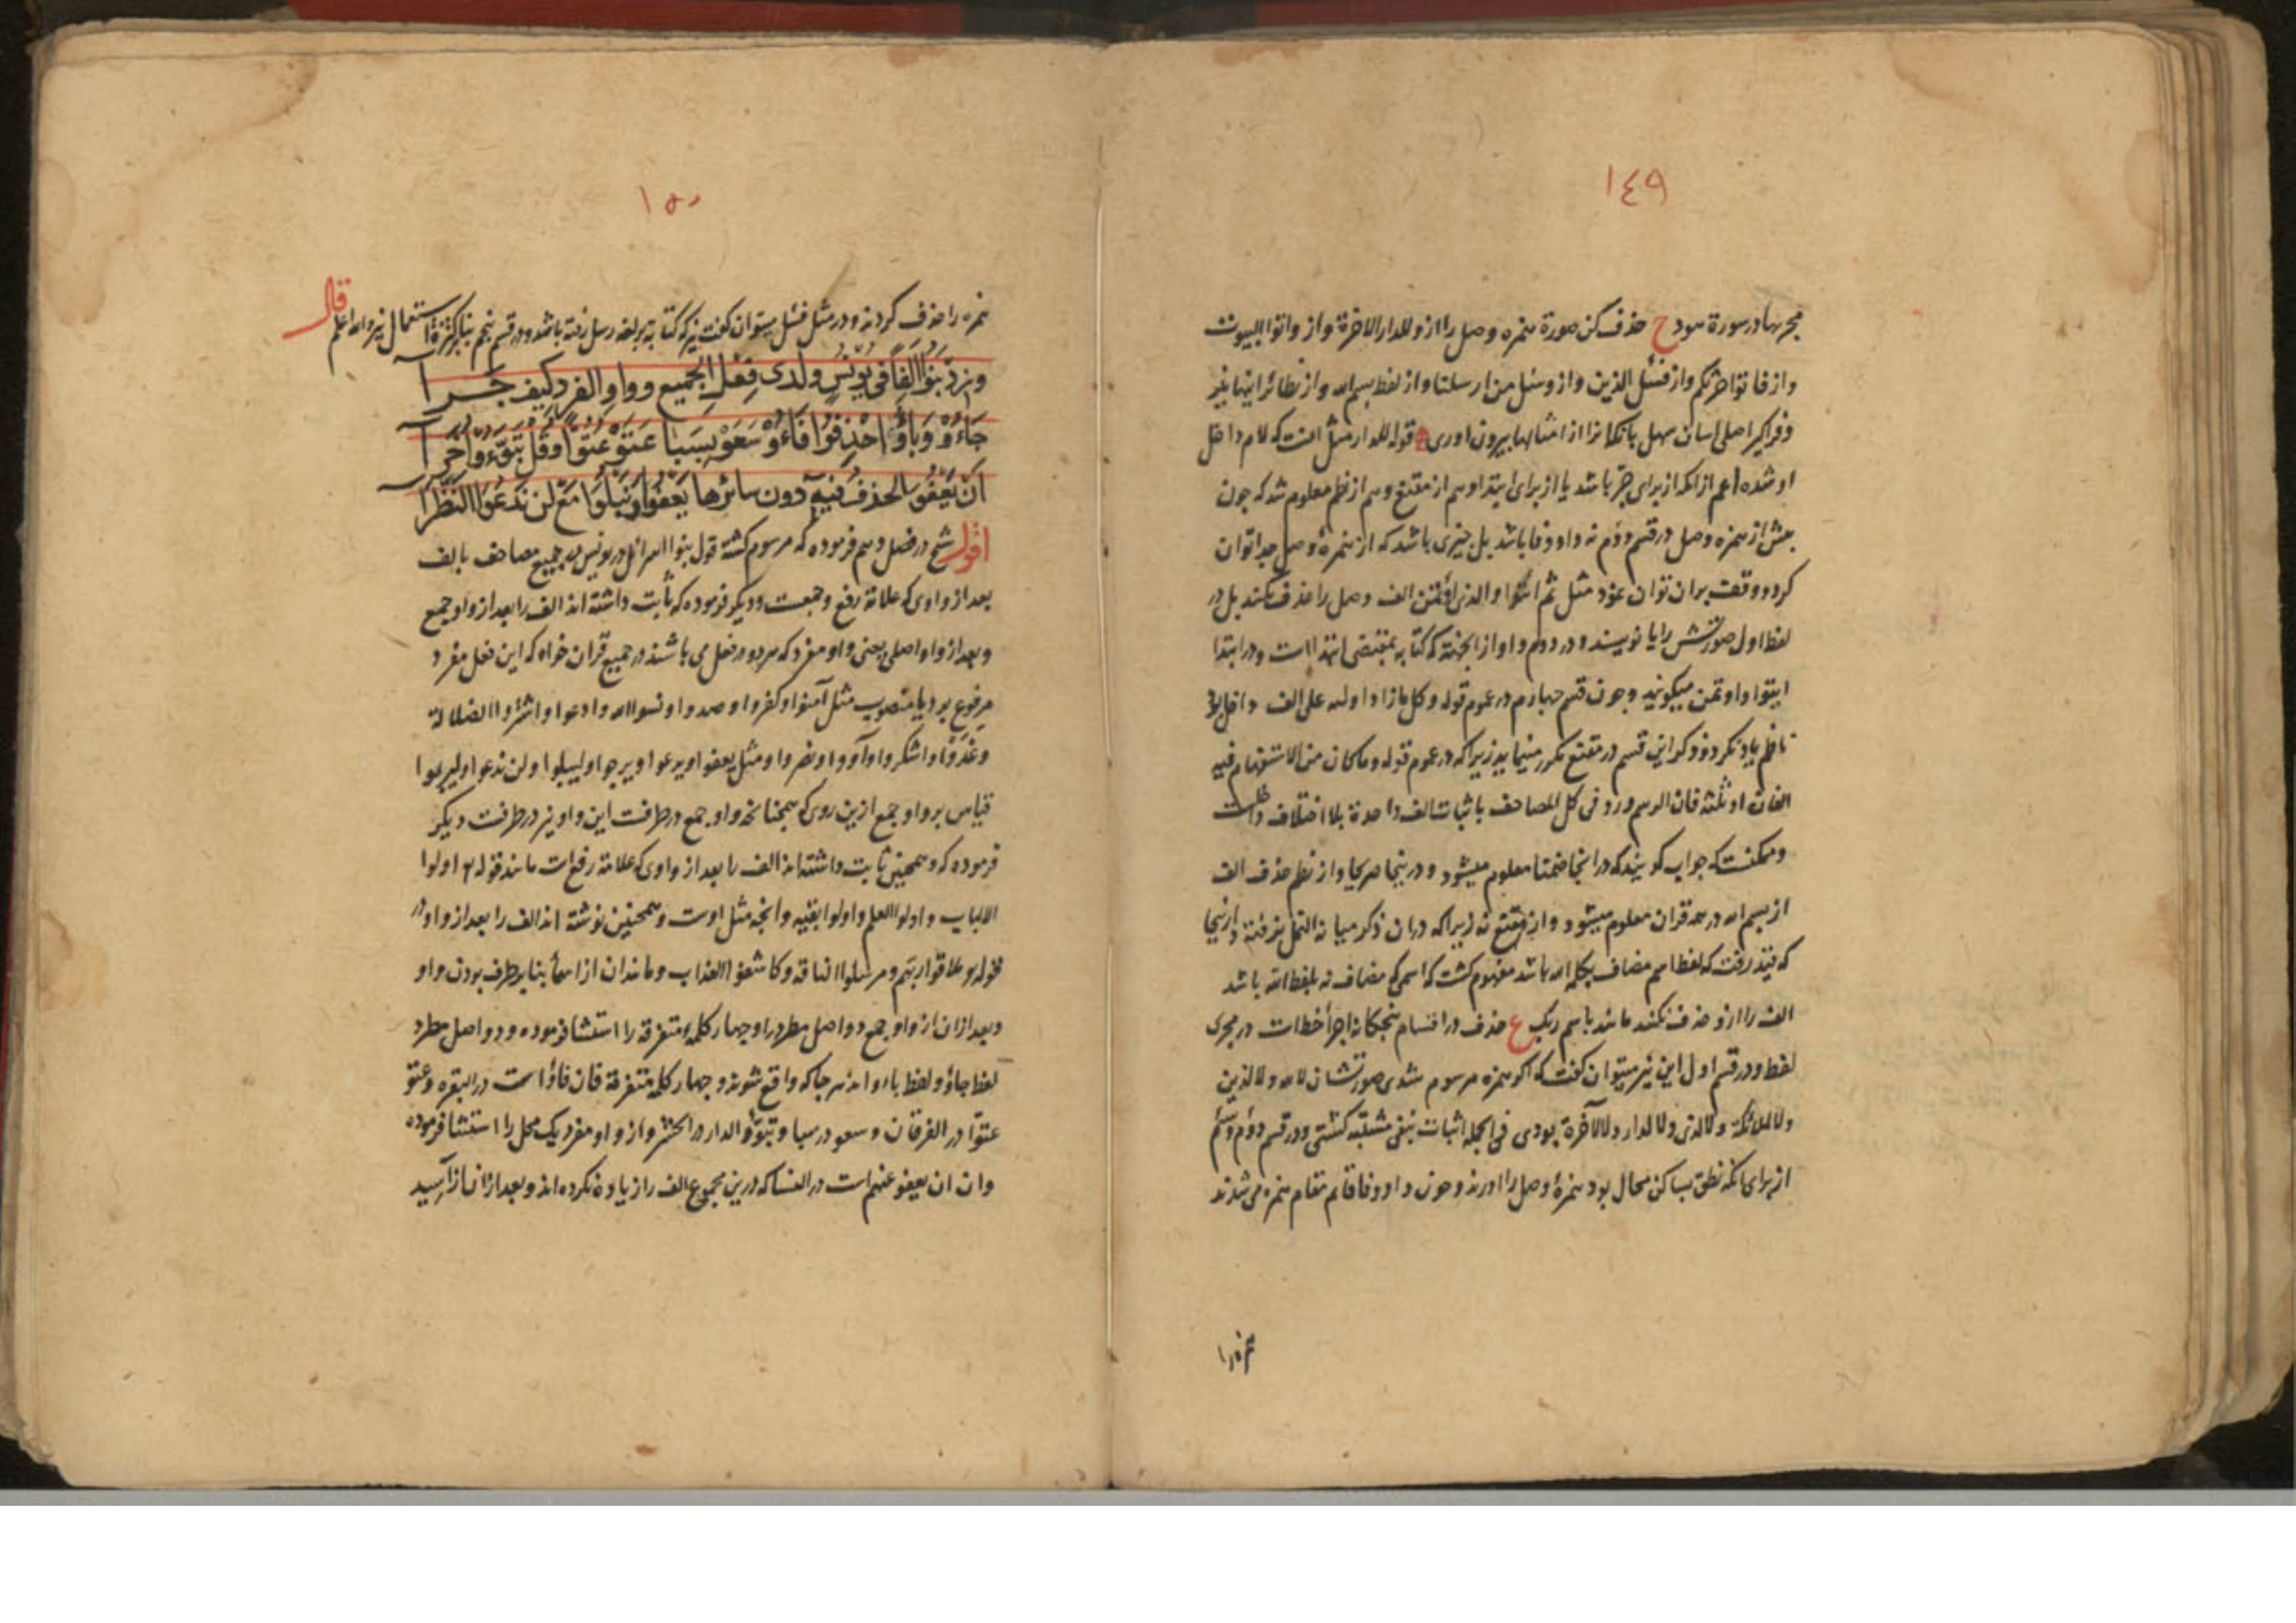 ١٤٩
مجریها در سورة هود ح حذف کن صورة همزه وصل را از و للدار الاخرة و از و اتوا البیوت
و از فاتوا حرثکم و از فسئل الذین و از وسئل من ارسلنا و از لفظ بسم الله و از نظائر اینها بغیر
و فراگیر اصلی اسان سهل یا نکتها را از امثالها بیرون اوری قوله للدار مثل انست که لام داخل
او شده اعم از انکه از برای جر باشد یا از برای ابتدا و هم از مقنع و هم از نظم معلوم شد که چون
پیش از همزه وصل در قسم دوم نه واو و فا باشد بل چیزی باشد که از همزه وصل جدا توان
کرد و وقف بران توان نمود مثل ثم ائتوا و الذی اؤتمن الف وصل را حذف نکنند بل در
لفظ اول صورتش را یا نویسند و در دوم واو از انجهة که کتابه بمقتضی ابتدا است و در ابتدا
ایتوا و اوتمن میگویند و چون قسم چهارم در عموم قوله و کل ما زاد اولاه علی الف داخل بود
ناظم یاد نکرد و ذکر این قسم در مقنع مکرر مینماید زیرا که در عموم قوله و ما کان من الاستفهام فیه
الفان او ثلثة فان الرسم ورد فی کل المصاحف باثبات الف واحدة بلا اختلاف داخلست
و ممکنست که جواب گویند که در انجا ضمنا معلوم میشود و در ینجا صریحا و از نظم حذف الف
از بسم الله در همه قران معلوم میشود و از مقنع نه زیرا که دران ذکر میانه النمل نرفته و از ینجا
که قید رفت که لفظ اسم مضاف بکلمه الله باشد مفهوم گشت که اسمی که مضاف نه بلفظ الله باشد
الف را از و حذف نکنند مانند باسم ربک ع حذف در اقسام پنجگانه اجرأ خطات در مجری
لفظ و در قسم اول این نیز میتوان گفت که اگر همزه مرسوم شدی صورتشان لا الله و لا الذین
و لا الملائکة و لا التی و لا الدار و لا الآخرة بودی فی الجمله اثبات بنفی مشتبه گشتی و در قسم دوم و سیم
از برای انکه نطق بساکن محال بود همزه وصل را اورند و چون واو و فا قائم مقام همزه می شدند
همزه را
١٥٠
همزه را حذف کردند و در مثل فسئل میتوان گفت نیز که کتابه بر لغه رسل رفته باشد و در قسم پنجم بنا بر کثرة استعمال نیز و الله اعلم قال
وزد بنوا الفا فی یونس ولدی فعل الجمیع وواو الفرد کیف جرا
جاءو و باؤ احذفوا فاءو سعو بسبا عتو عتوا وقل تبوءو اخرا
ان یعفو الحذف فیه دون سائرها یعفوا ونبلوا مع لن ندعوا النظرا
اقول شیخ در فصل دهم فرموده که مرسوم گشته قول بنوا اسرائل در یونس در جمیع مصاحف بالف
بعد از واوی که علامة رفع و جمعست و دیگر فرموده که ثابت داشته اند الف را بعد از واو جمع
و بعد از واو اصلی یعنی واو مفرد که هر دو در فعل می باشند در جمیع قران خواه که این فعل مفرد
مرفوع بود یا منصوب مثل آمنوا و کفروا و صدوا و نسوا الله و ادعوا و اشتروا الضلالة
و غدوا و اشکروا و آووا و نصروا و مثل یعفوا و یدعوا و یرجوا و لیبلوا و لن ندعوا و لیربوا
قیاس بر واو جمع ازین روی که همچنانکه واو جمع در طرفست این واو نیز در طرفست دیگر
فرموده که و همچنین ثابت داشته اند الف را بعد از واوی که علامة رفعات مانند قوله تع اولوا
الالباب و اولوا العلم و اولوا بقیه و انچه مثل اوست و همچنین نوشته اند الف را بعد از واو در
قوله ملاقوا ربهم و مرسلوا الناقه و کاشفوا العذاب و مانندان از اسمأ بنا بر طرف بودن واو
و بعد ازان از واو جمع دو اصل مطرد را و چهار کلمه متفرقه را استثنا فرموده و دو اصل مطرد
لفظ جاؤ و لفظ باؤ اند هر جا که واقع شوند و چهار کلمه متفرقة فان فاؤ است در البقره و عتو
عتوا در الفرقان و سعو در سبا و تبوؤ الدار در الحشر و از واو مفرد یک محل را استثنا فرموده
و ان ان یعفو عنهم است در النسا که درین مجموع الف را زیاده نکرده اند و بعد ازان